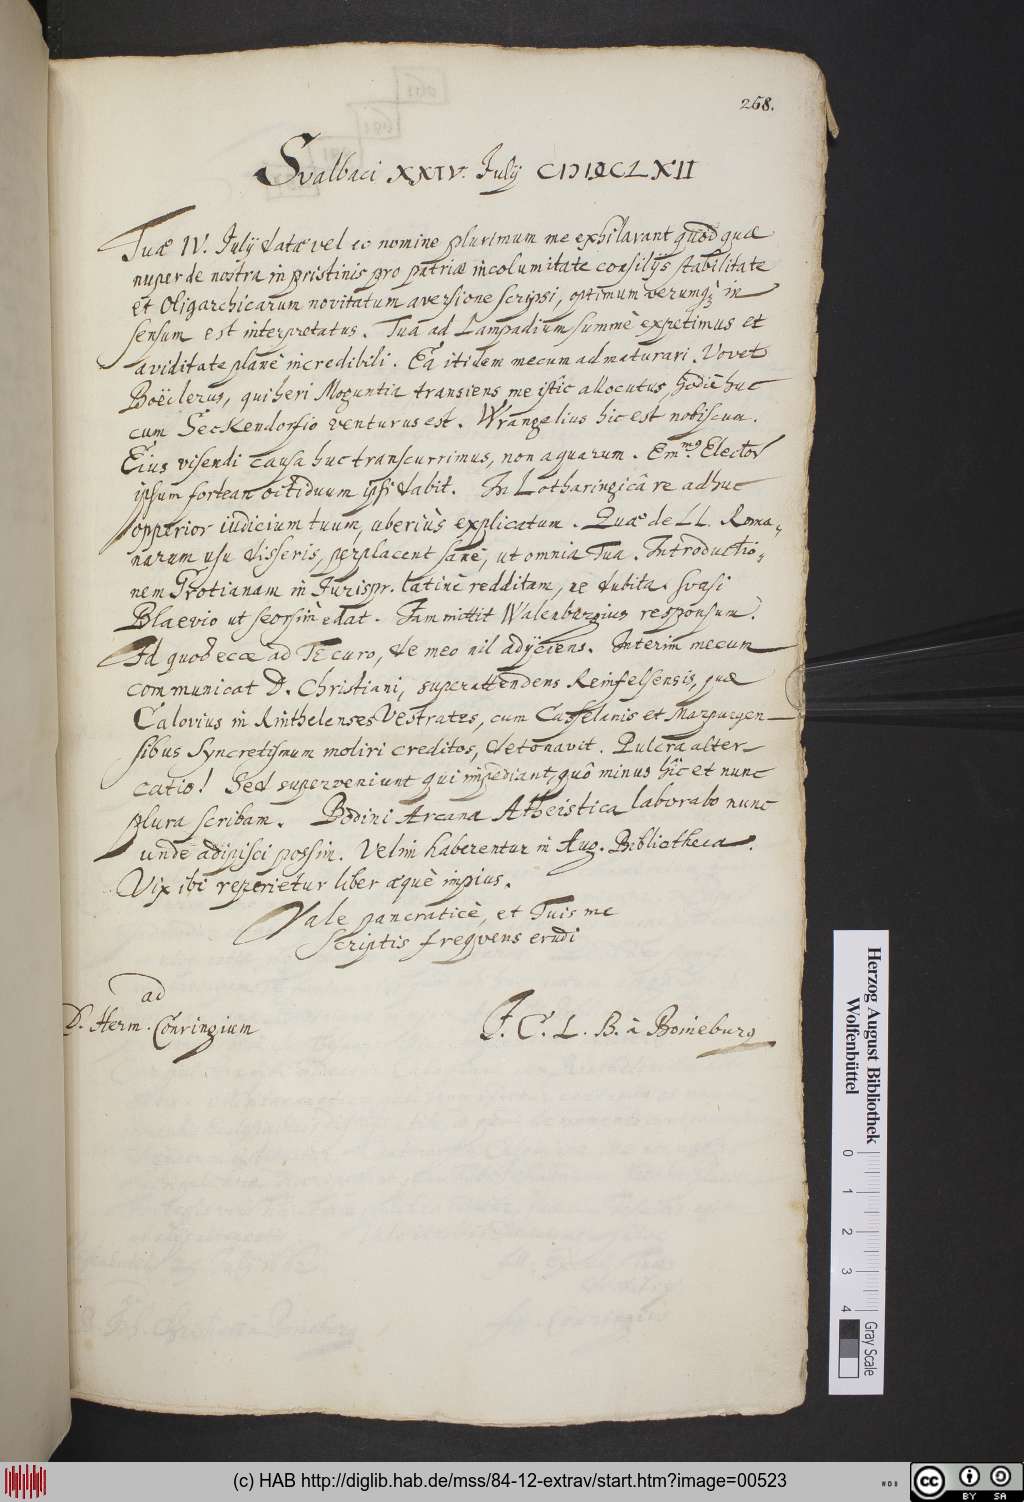 268.
Svalbaci XXIV. Julij CIƆIƆCLXII
Tuæ IV. Julij datæ vel eo nomine plurimum me exhilarant quòd quæ
nuper de nostra in pristinis pro patriæ incolumitate consilijs stabilitate
et Oligarchicarum novitatum aversione scripsi, optimum verumq; in
sensum est interpretatus. Tua ad Lampadium summè expetimus et
aviditate planè incredibili. Ea itidem mecum admaturari vovet
Boëclerus, qui heri Moguntia transiens me istic allocutus, hodiè huc
cum Seckendorfio venturus est. Wrangelius hic est nobiscum.
Eius visendi causa huc transcurrimus, non aquarum. Em.mq Elector
ipsum fortean octiduum ipsi dabit. In Lotharingicâ re adhuc
opperior iudicium tuum, uberiùs explicatum. Quæ de LL. Roma-
narum usu disseris, perplacent sanè, ut omnia Tua. Introductio-
nem Grotianam in Jurispr. latinè redditam, ne dubita, svasi
Blaevio ut seorsim edat. Jam mittit Walenburgius responsum.
Id quod ecce ad Te curo, de meo nil adijciens. Interim mecum
communicat D. Christiani, superattendens Reinfelsensis, quæ
Calovius in Rinthelenses Vestrates, cum Casselanis et Marpurgen-
sibus Syncretismum moliri creditos, detonavit. Pulcra alter-
catio! Sed superveniunt qui impediant, quô minus hîc et nunc
plura scribam. Bodini Arcana Atheistica laborabo nunc
unde adipisci possim. Velim haberentur in Aug. Bibliotheca.
Vix ibi reperietur liber æquè impius.
Vale pancraticè, et Tuis me
scriptis freqvens erudi
ad
D. Herm. Conringium
J. C. L. B. à Boineburg
Herzog August Bibliothek
Wolfenbüttel
0 1 2 3 4
Gray Scale
(c) HAB http://diglib.hab.de/mss/84-12-extrav/start.htm?image=00523
cc BY SA